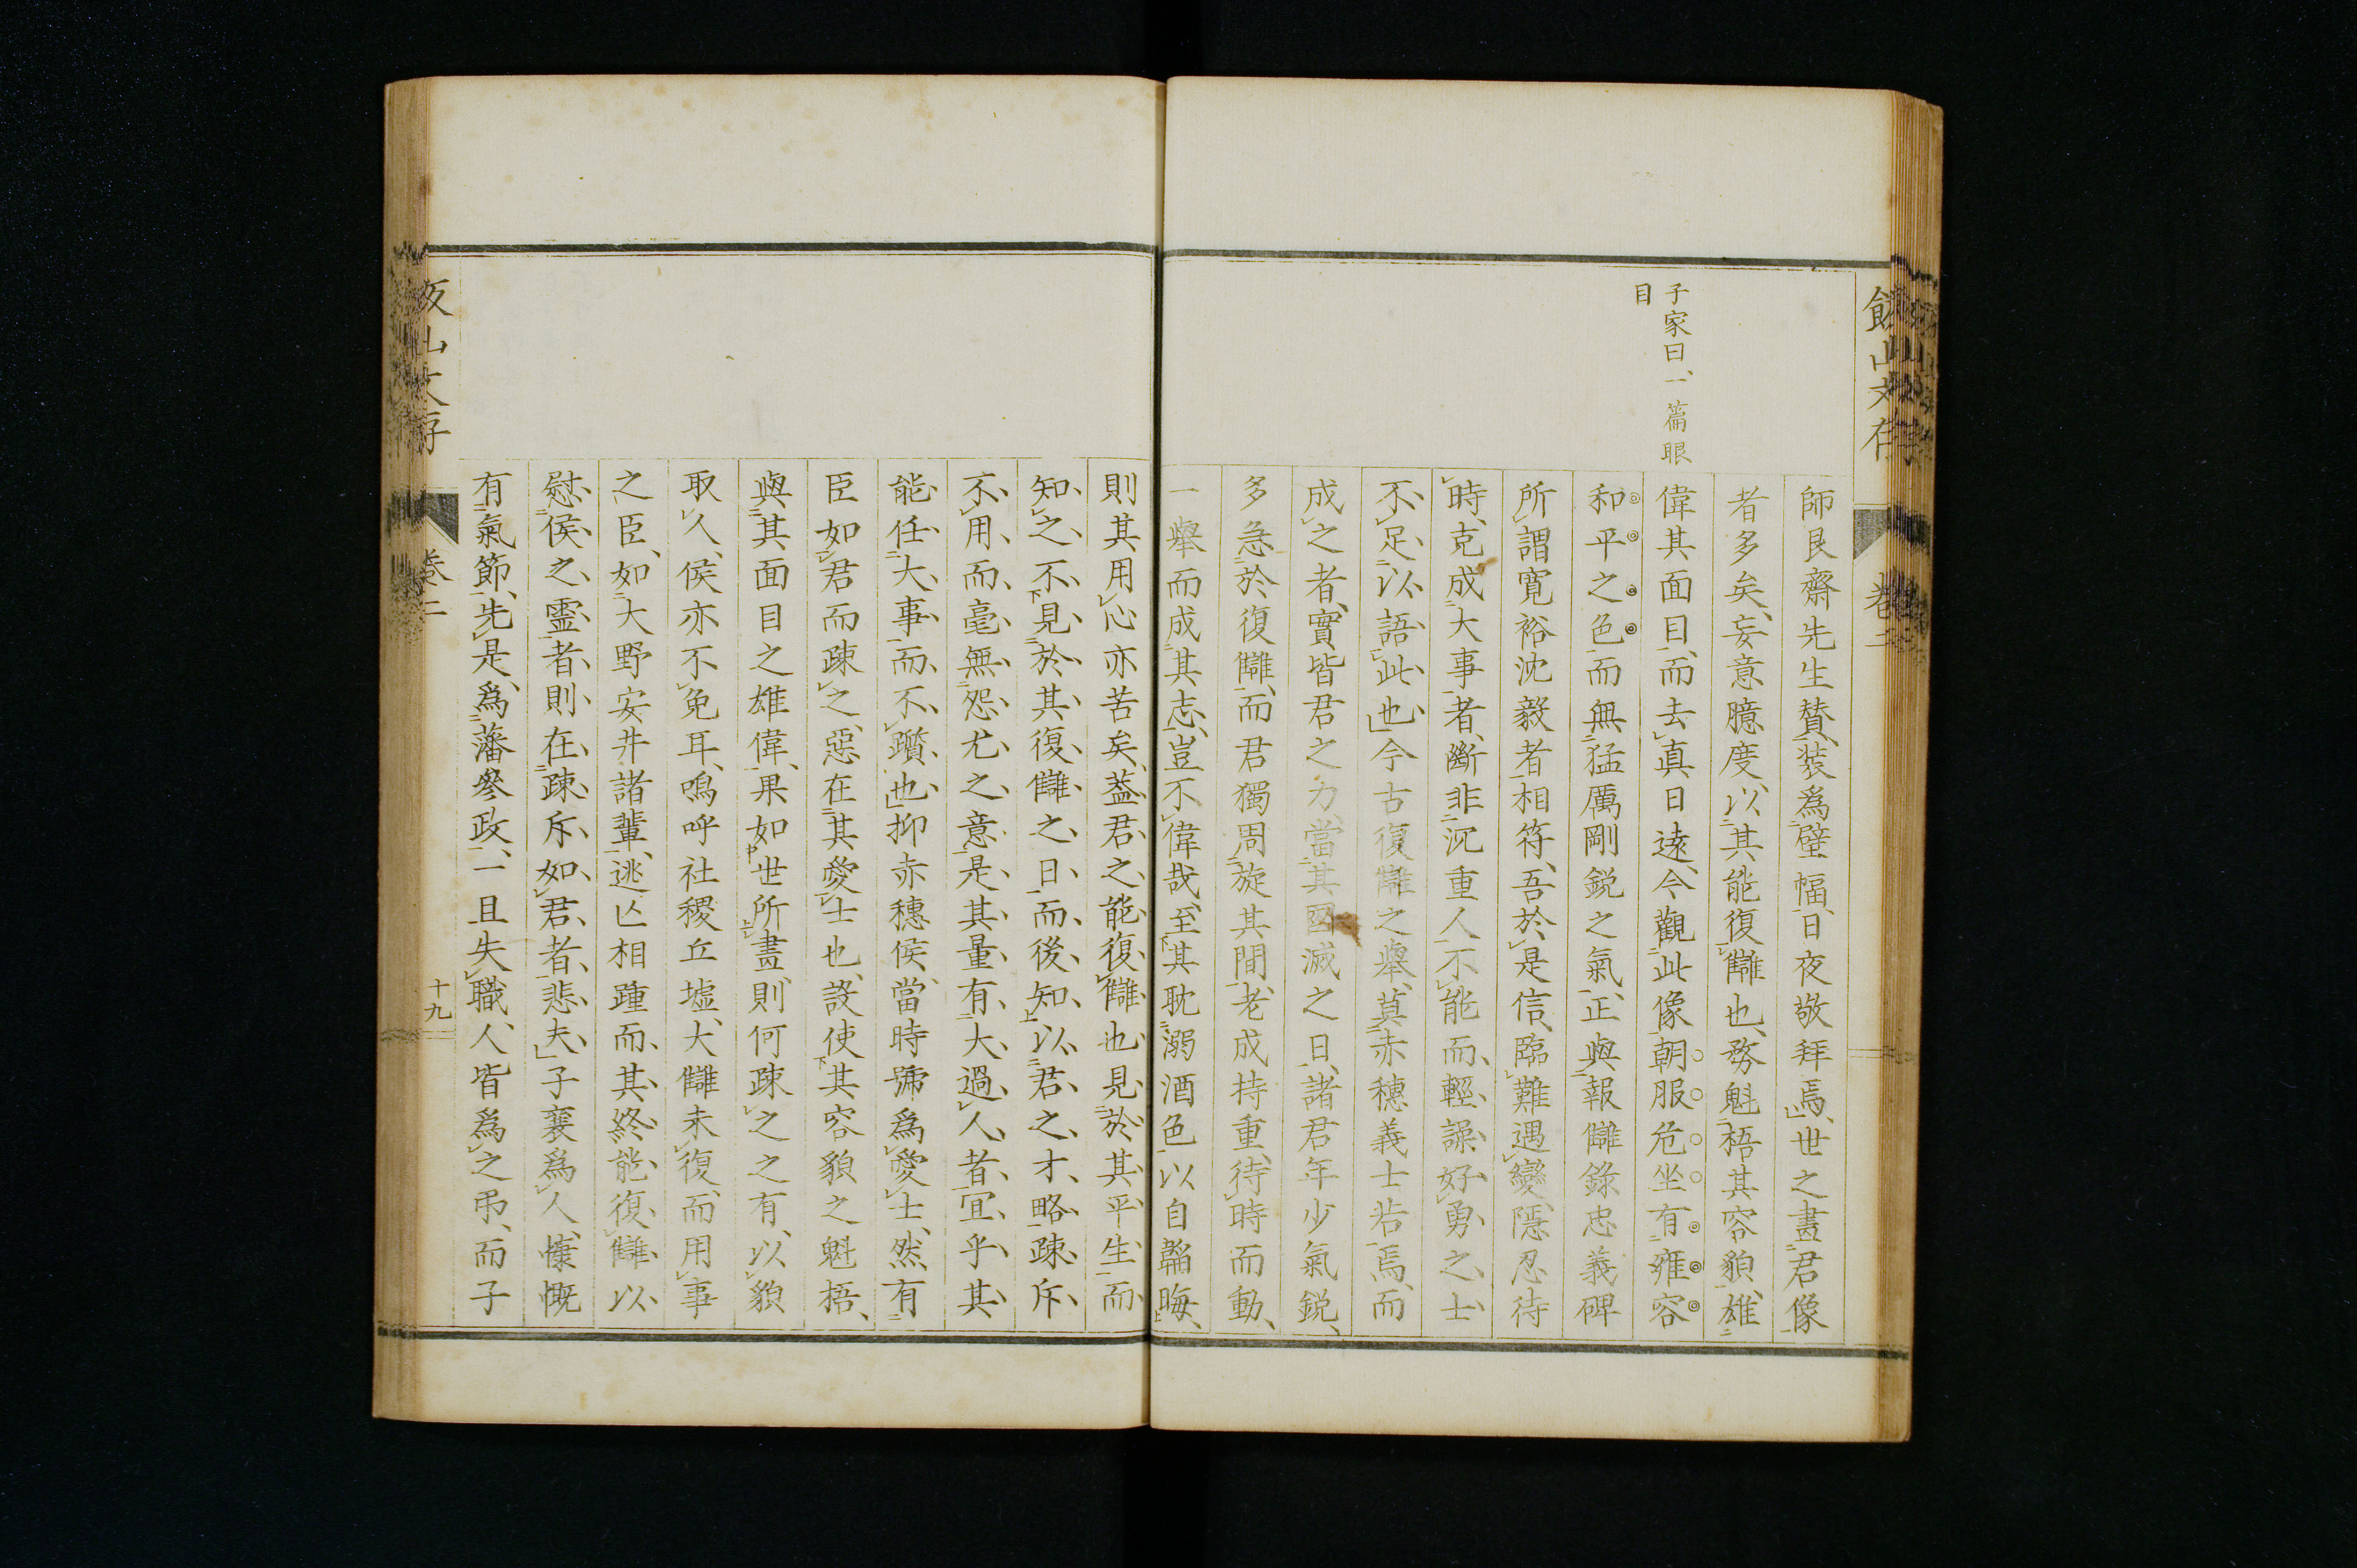 飯山文存
卷二
子家曰、一篇眼
目
師艮齋先生賛、裝爲壁幅、日夜敬拜焉、世之畫君像
者多矣、妄意臆度、以其能復讎也、務魁梧其容貌、雄
偉其面目、而去眞日遠、今觀此像、朝服危坐有雍容
和平之色、而無猛厲剛鋭之氣、正與報讎錄忠義碑
所謂寬裕沈毅者相符、吾於是信、臨難遇變、隱忍待
時、克成大事者、斷非沉重人不能、而輕譟好勇之士
不足以語此也、今古復讎之擧、莫赤穗義士若焉、而
成之者、實皆君之力、當其國滅之日、諸君年少氣鋭、
多急於復讎、而君獨周旋其間、老成持重、待時而動、
一擧而成其志、豈不偉哉、至其耽溺酒色、以自韜晦、
則其用心亦苦矣、蓋君之能復讎也、見於其平生、而
知之不見於其復讎之日、而後知、以君之才略、疎斥
不用、而毫無怨尤之意、是其量有大過人者、宜乎其
能任大事、而不躓也、抑赤穗侯、當時號爲愛士、然有
臣如君而疎之、惡在其愛士也、設使其容貌之魁梧、
與其面目之雄偉、果如世所畫、則何疎之之有、以貌
取人、侯亦不免耳、嗚呼社稷丘墟、大讎未復、而用事
之臣、如大野安井諸輩、逃亡相踵、而其終能復讎、以
慰侯之靈者、則在疎斥如君者、悲夫、子襄爲人、慷慨
有氣節、先是、爲藩參政、一旦失職、人皆爲之弔、而子
飯山文存
卷二
十九